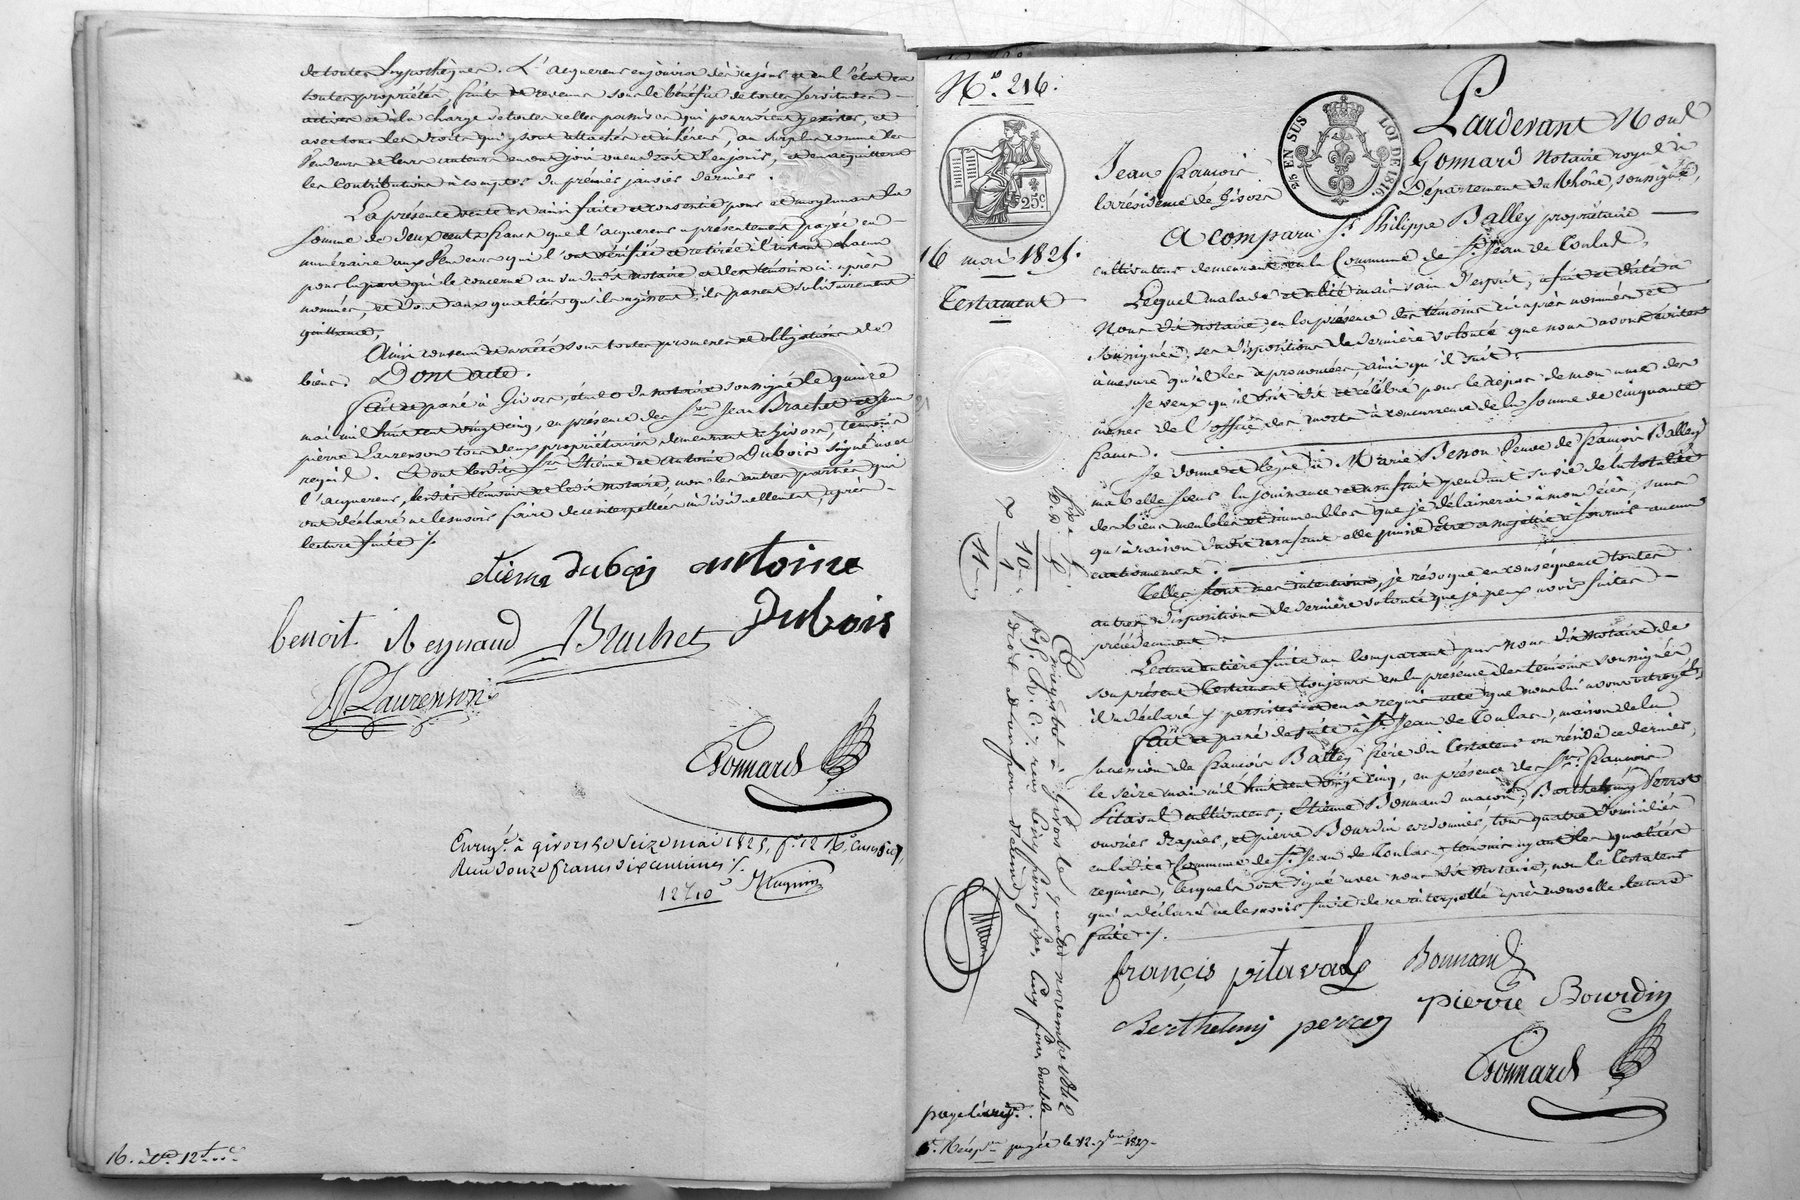 de toutes hypothèques. L'acquereur en jouira dès ce jour en l'état en
toute propriété, fruits et revenus sous le bénéfice de toutes servitudes
actives et à la charge de toutes celles passives qui pourroient y exister, et
avec tous les droits qui y sont attachés et inhérens, au simple comme les
vendeurs et leurs auteurs en ont joui ou eu droit d'en jouir, et en acquittera
les contributions à compter du premier janvier dernier.
La présente vente est ainsi faite et consentie pour et moyennant la
somme de deux cents francs que l'acquereur a présentement payée en
numéraire aux vendeurs qui l'ont vérifiée et retirée à l'instant chacun
pour la part qui le concerne au vu dudit notaire et des témoins ci-après
nommés, et dont aux qualités qu'ils agissent, ils passent solidairement
quittance.
Ainsi convenu et arrêté sous toutes promesses et obligations de
biens. Dont acte.
Fait et passé à Givors, étude du notaire soussigné le quinze
mai mil huit cent vingt cinq, en présence des Srs Jean Brachet et Jean
pierre Laurenson tous deux propriétaires demeurant à Givors, témoins
requis. Et ont lesdits Srs Etienne et Antoine Dubois signé avec
l'acquereur, lesdits témoins et ledit notaire, non les autres parties qui
ont déclaré ne le savoir faire de ce interpellées individuellement, après
lecture faite /.
etienne dubois antoine
Dubois
benoit Reynaud Brachet
Laurenson
Gonnard
Enreg.é à givors le seize mai 1825, f.º 12
Reçu douze francs dix centimes /.
12 f 10
N.º 216.
25c
2/5 EN SUS
LOI DE 1816.
16 mai 1825.
Testament
Pardevant Nous
Jean François Gonnard notaire royal à
la résidence de Givors Département du Rhône, soussigné,
A comparu Sr. Philippe Balley propriétaire
cultivateur demeurant en la Commune de St. Jean de Toulas,
Lequel malade et alité mais sain d'esprit, a fait et dicté à
Nous dit notaire, en la présence des témoins ci-après nommés et
soussignés, ses dispositions de dernière volonté que nous avons écrites
à mesure qu'il les a prononcées, ainsi qu'il suit.
Je veux qu'il soit dit et célébré pour le repos de mon ame des
messes de l'office des morts à concurrence de la somme de cinquante
francs.
Je donne et legue à Marie Besson veuve de François Balley
ma belle soeur la jouissance et usufruit pendant sa vie de la totalité
des biens meubles et immeubles que je délaisserai à mon décès, sans
qu'à raison dudit usufruit elle puisse être assujettie à fournir aucun
cautionnement.
Telles sont mes intentions, je révoque en conséquence toutes
autres dispositions de dernière volonté que je peux avoir faites
précédemment.
Lecture entière faite au comparant par nous dit notaire de
son présent testament toujours en la présence des témoins soussignés
il a déclaré y persister et en a requis acte que nous lui avons octroyé.
Fait et passé de suite à St. Jean de Toulas, maison de la
succession de François Balley frère du testateur où réside ce dernier,
le seize mai mil huit cent vingt cinq, en présence de Srs. François
Pitaval cultivateur, Etienne Bonnand maçon, Barthelemy Perret
ouvrier drapier, et pierre Bourdin cordonnier, tous quatre domiciliés
en ladite Commune de St. Jean de Toulas, témoins ayant les qualités
requises, lesquels ont signé avec nous dit notaire, non le testateur
qui a déclaré ne le savoir faire de ce interpellé après nouvelle lecture
faite /.
françois pitaval Bonnand
Berthelemy perret pierre Bourdin
Gonnard
Enregistré à Givors le quatre novembre 1842
page
payée le 12
16.